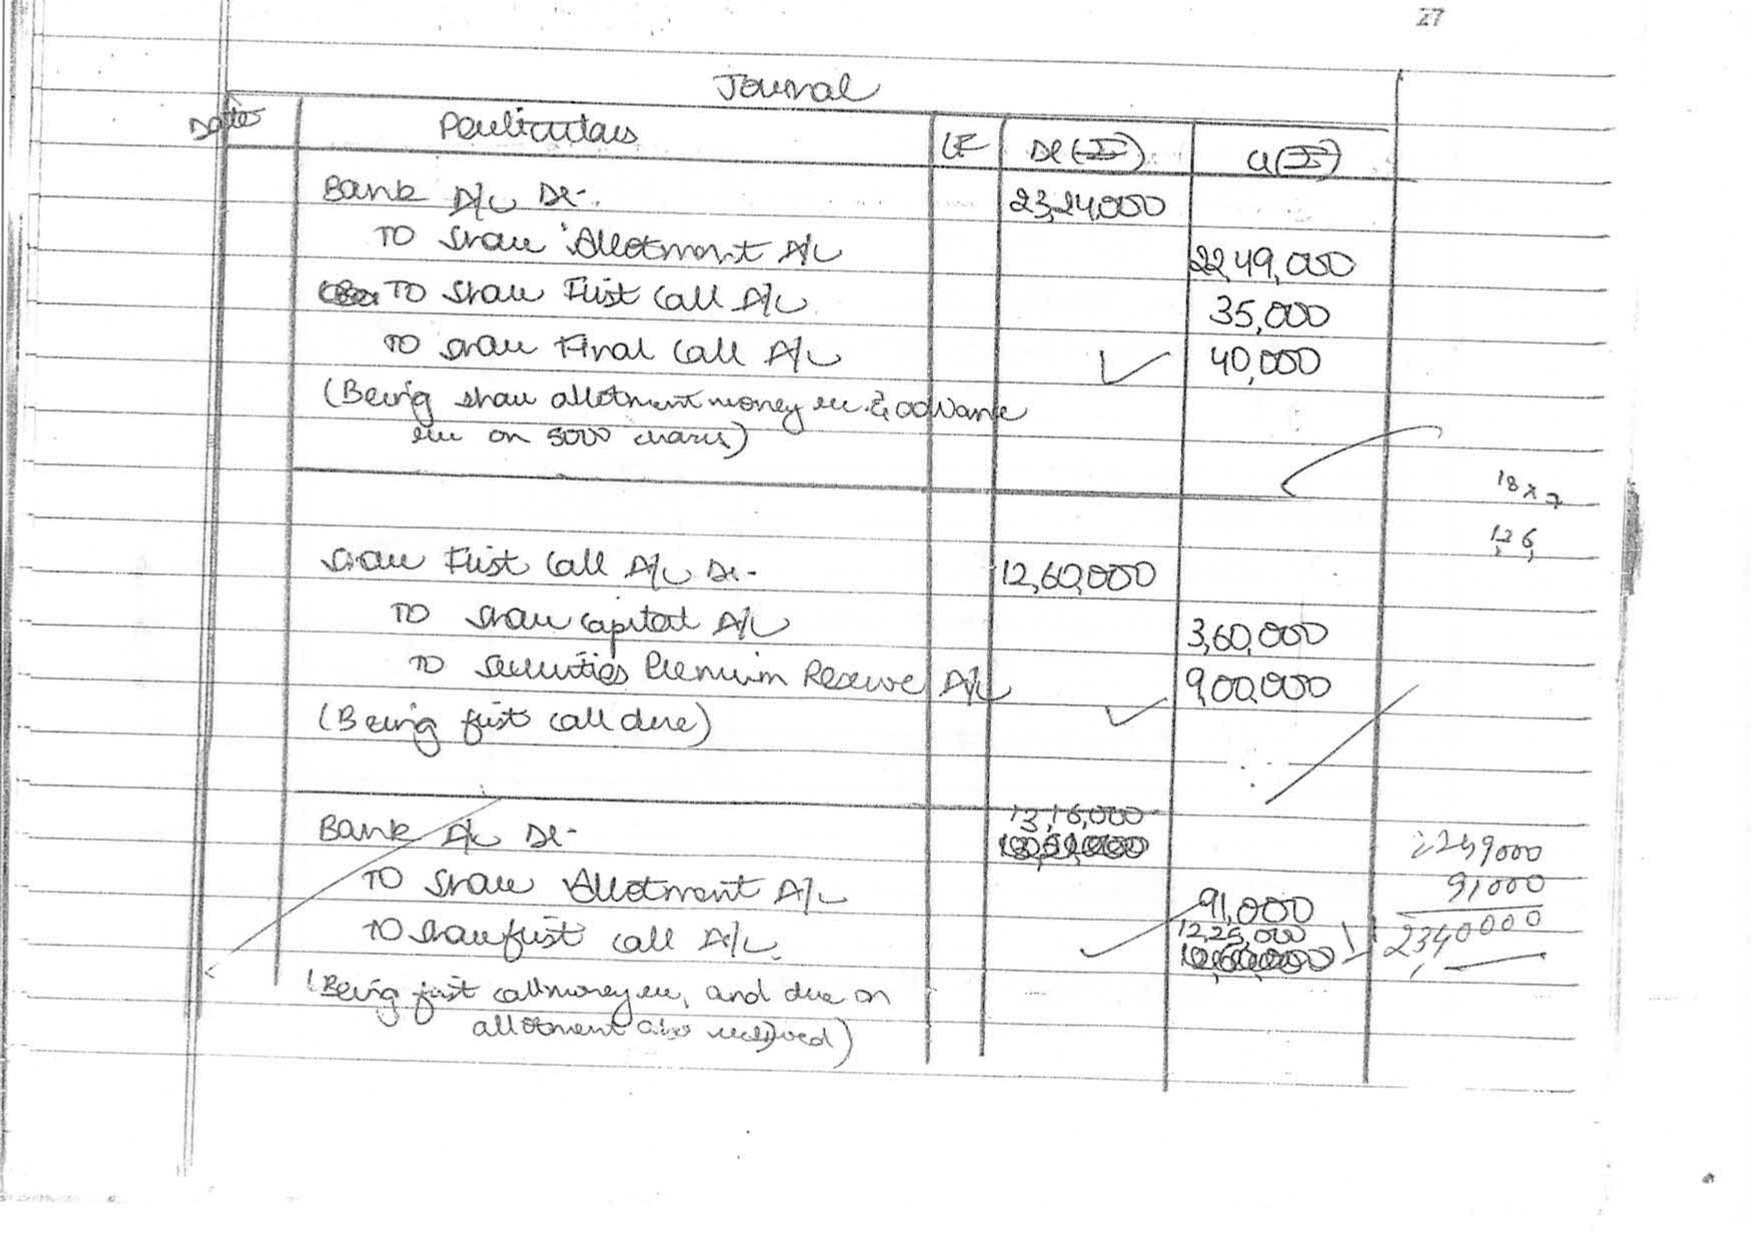 27
Journal
Date Particulars LF Dr (₹) Cr (₹)
Bank A/c Dr. 23,24,000
To Share Allotment A/c 22,49,000
To Share First Call A/c 35,000
To Share Final Call A/c 40,000
(Being share allotment money rec. & advance
rec on 5000 shares)
18 x 7
126
Share First Call A/c Dr. 12,60,000
To Share Capital A/c 3,60,000
To Securities Premium Reserve A/c 9,00,000
(Being first call due)
13,16,000
Bank A/c Dr. 2249000
To Share Allotment A/c 91,000 91000
12,25,000 2340000
To Share first call A/c.
(Being first call money rec, and due on
allotment also received)